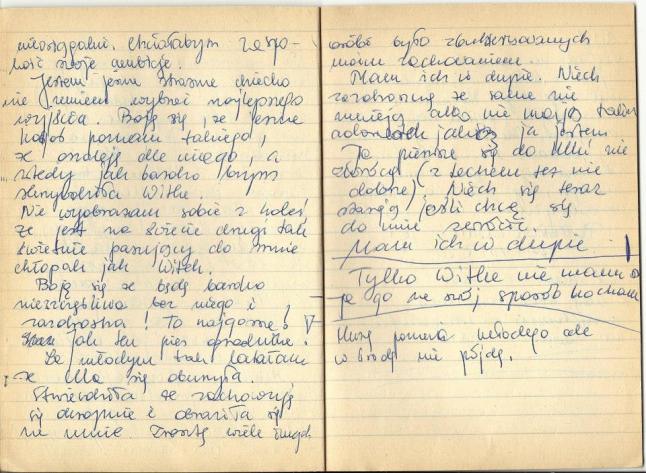 nieosiągalni. Chciałabym zaspo-
koić swoje ambicje.
Jestem jeszcze straszne dziecko
nie umiem wybrać najlepszego
wyjścia. Boję się, że jeszcze
kogoś poznam takiego,
że oszaleję dla niego, a
wtedy jak bardzo bym
skrzywdziła Witke.
Nie wyobrażam sobie z kolei,
że jest na świecie drugi tak
świetnie pasujący do mnie
chłopak jak Witek.
Boję się że będę bardzo
nieszczęśliwa bez niego i
zazdrosna! To najgorsze!
jak ten pies ogrodnika.
Za młodym tak latałam
że Ula się oburzyła.
Stwierdziła, że zachowuję
się okropnie i obraziła się
na mnie. Zresztą wiele innych
osób było zbulwersowanych
moim zachowaniem.
Mam ich w dupie. Niech
zazdroszczą że same nie
umieją albo nie mają takich
jak ja jestem
Ja pierwsza się do Uli nie
odezwę (z Lechem też nie
dobrze). Niech się teraz
starają jeśli chcą się
do mnie zwrócić.
Mam ich w dupie
Tylko Witke nie mam
ja go na swój sposób kocham
Muszę poznać młodego ale
w środę nie pójdę.